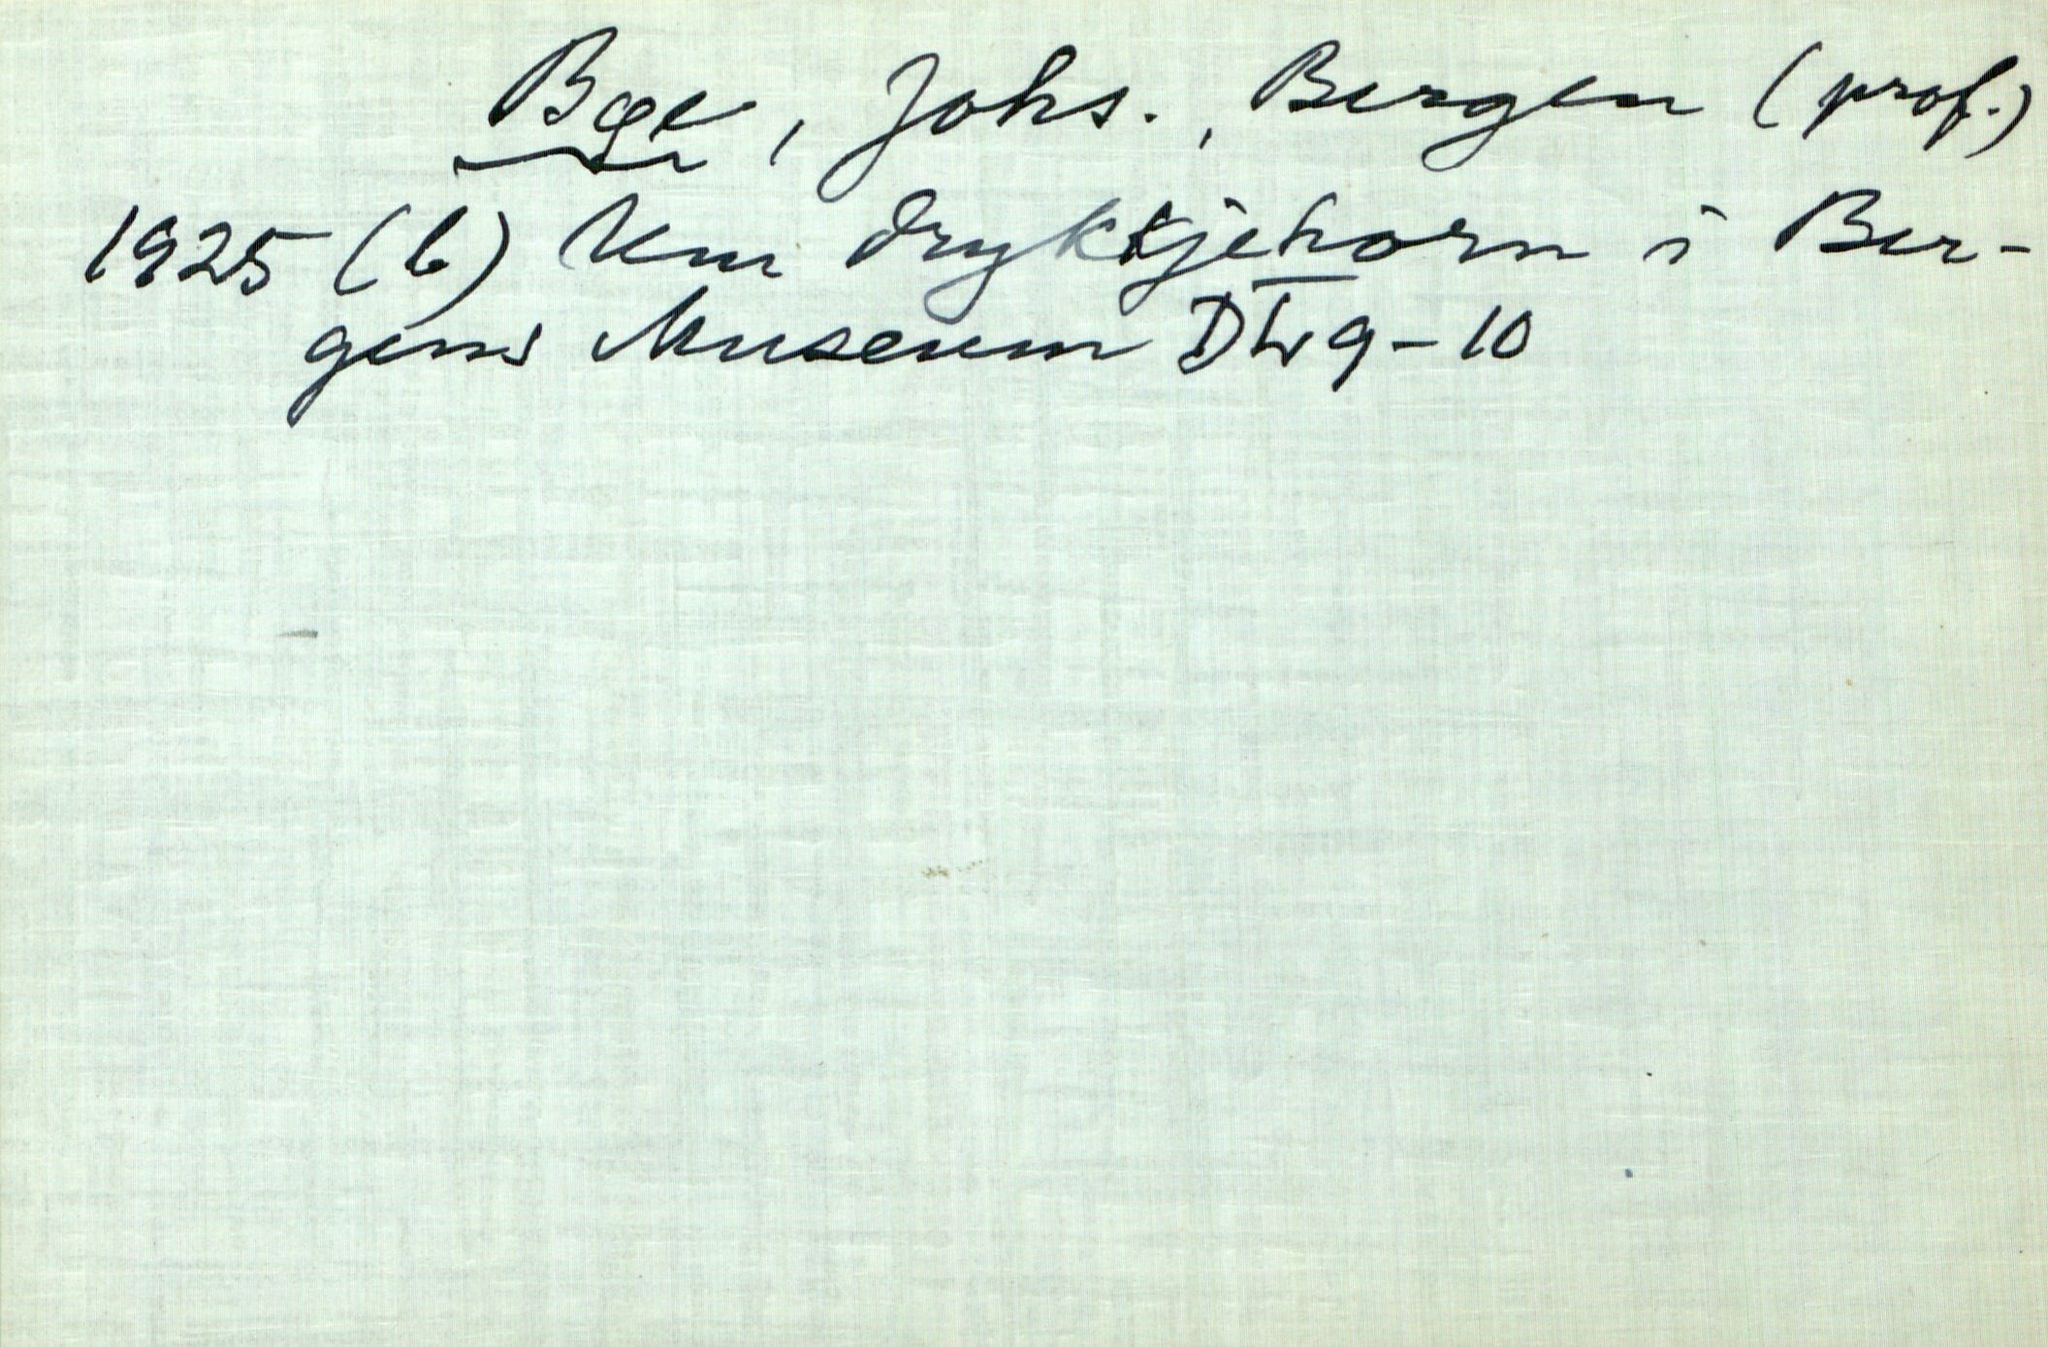 Bøe, Johs., Bergen (prof.)
1925 (b) Um dryktjehorn i Ber-
gens Museum DL 9-10